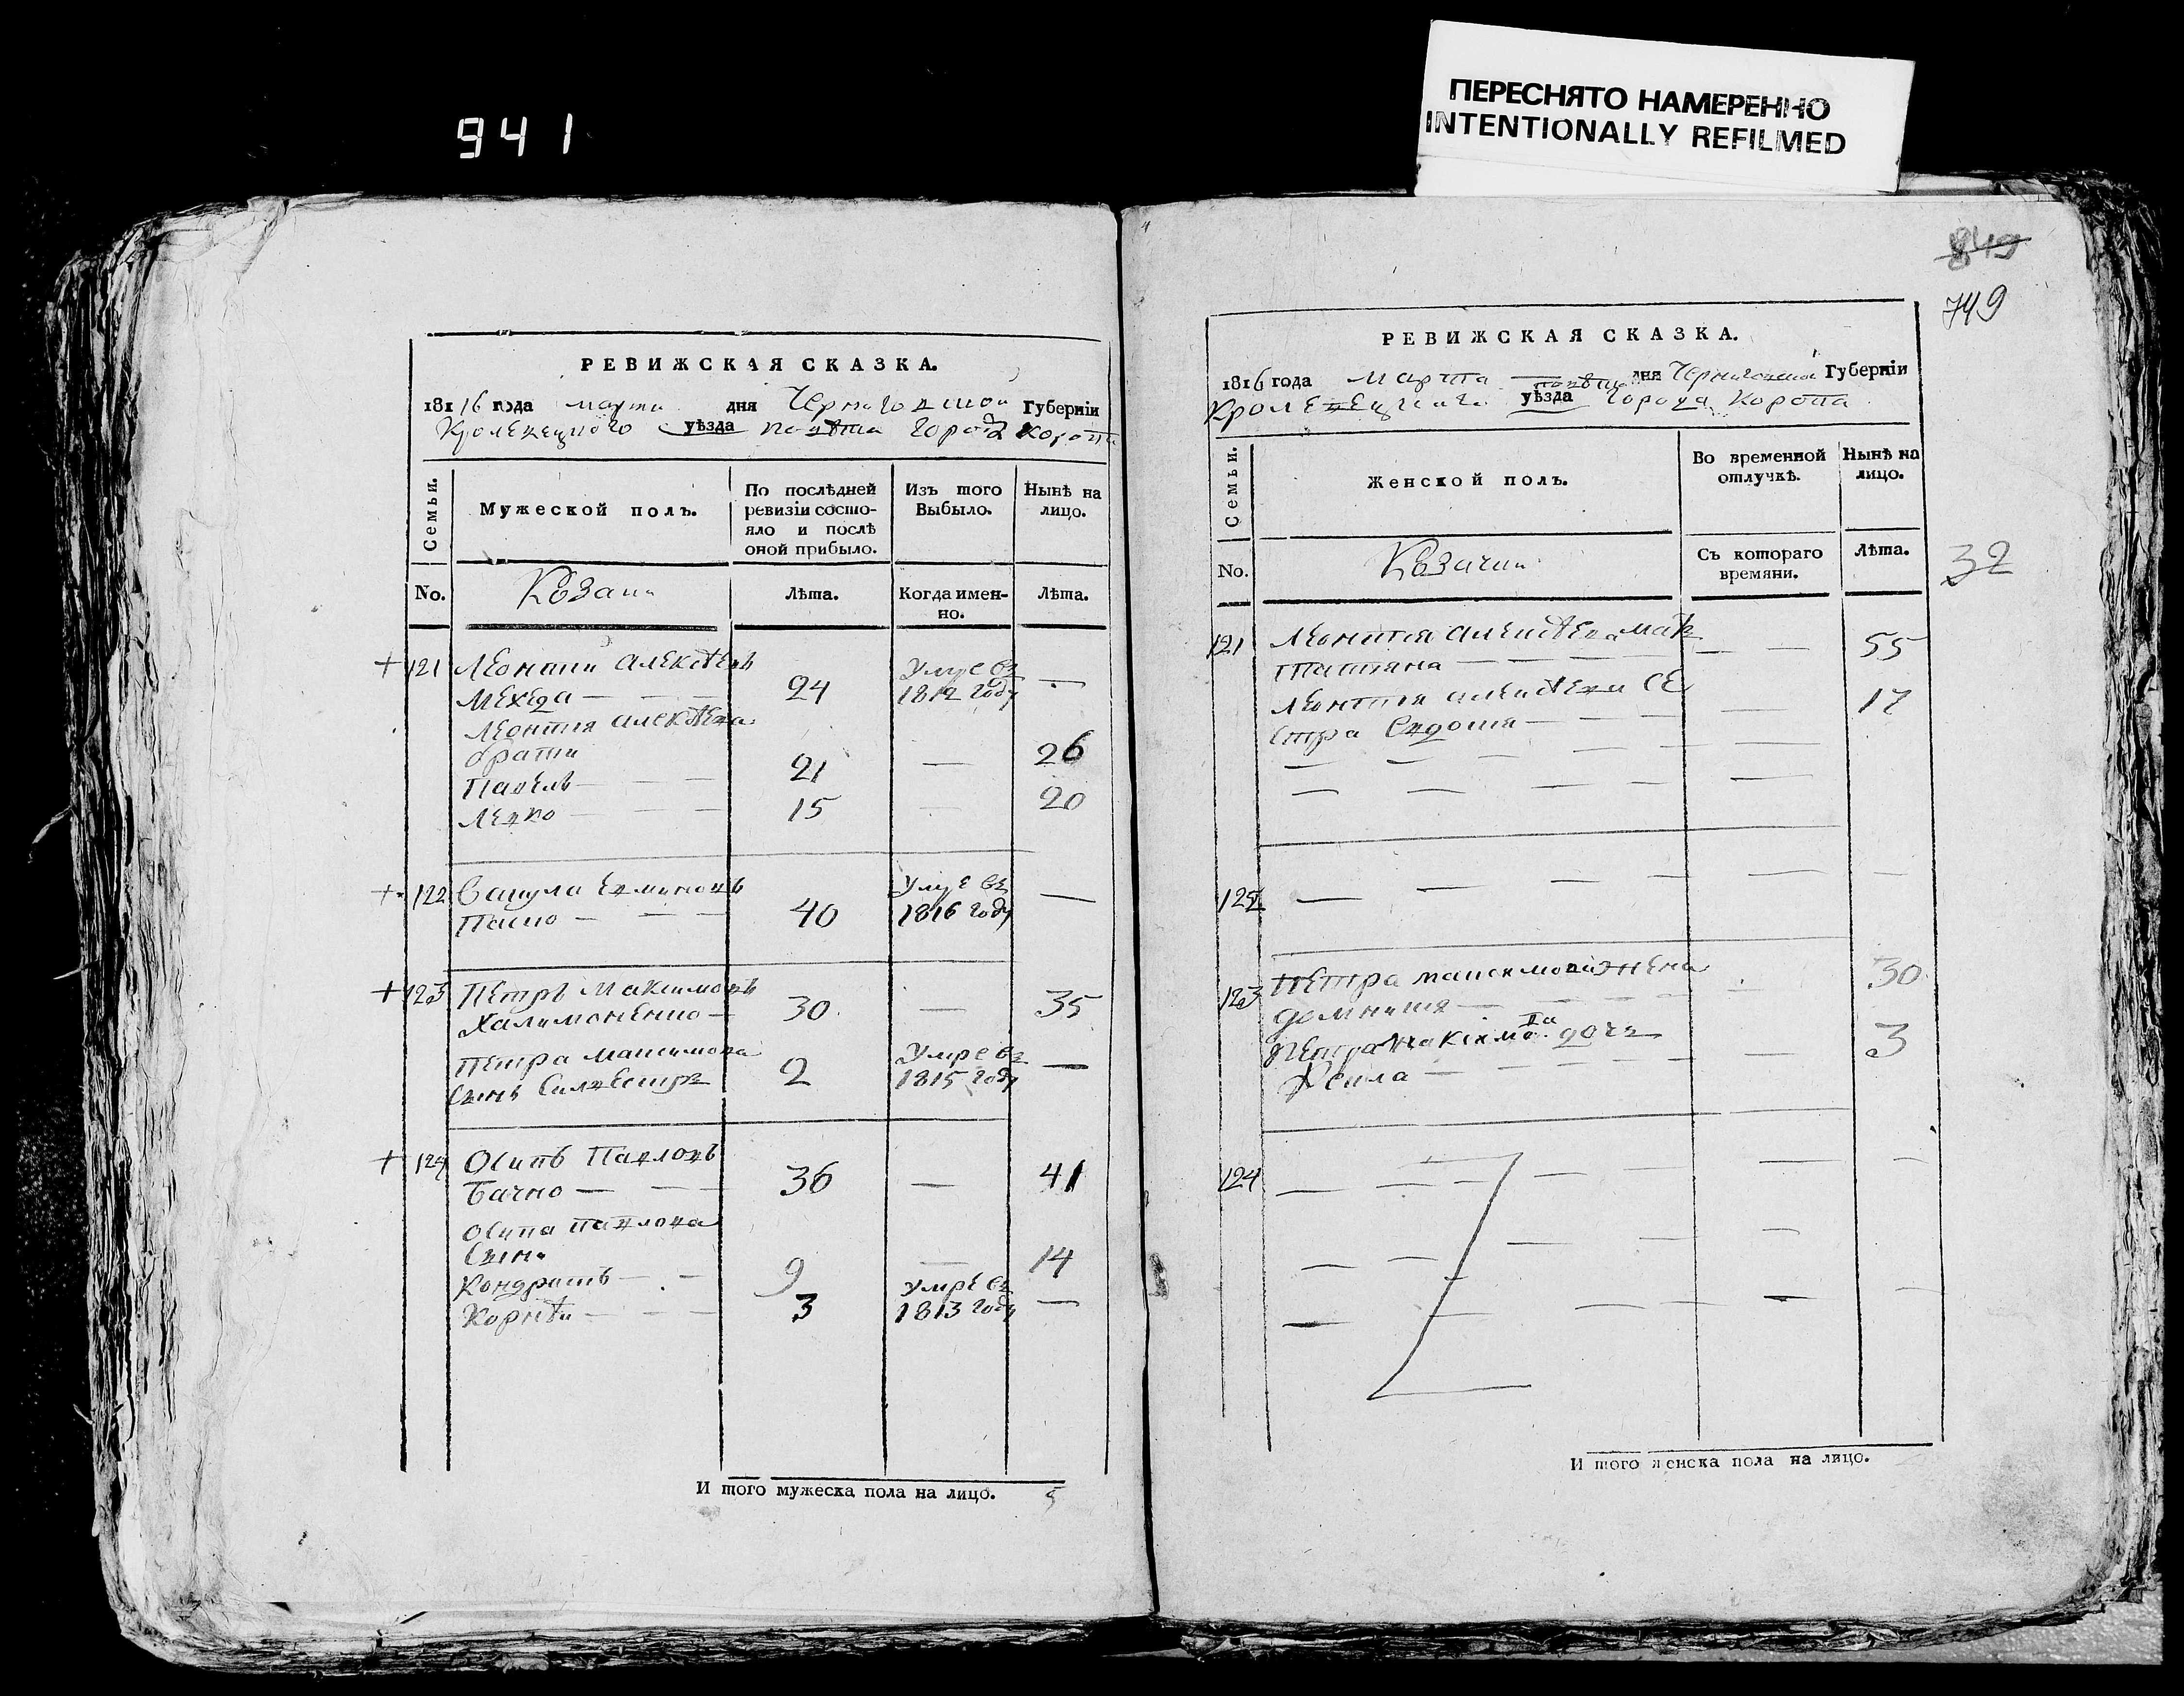 941
ПЕРЕСНЯТО НАМЕРЕННО
INTENTIONALLY REFILMED
849
749
РЕВИЖСКАЯ СКАЗКА.
1816 года марта дня Черниговской Губерніи
Кролевецкого уѣзда повѣта города Коропа
Семьи.
Мужеской полъ.
По послѣдней
ревизіи состо-
яло и послѣ
оной прибыло.
Изъ того
Выбыло.
Нынѣ на
лицо.
No.
Козаки
Лѣта.
Когда имен-
но.
Лѣта.
121 Леонтий Алексѣевъ
Мехеда 24 1812 году
Леонтия Алексѣева
брати
Павелъ 21 26
Левко 15 20
122
40 1816 году
123 Петръ Максимовъ
Халимоненко 30 35
Петра Максимова Умре въ
Сынъ Силвестръ 2 1815 году
124 Осипъ Павловъ
Бачко 36 41
Осипа Павлова
Сыны
Кондратъ 9 14
Умре въ
Корнѣй 3 1813 году
И того мужеска пола на лицо. 5
РЕВИЖСКАЯ СКАЗКА.
1816 года Марта повѣта дня Черниговской Губерніи
Кролевецкого уѣзда города Коропа
Семьи.
Женской полъ.
Во временной
отлучкѣ.
Нынѣ на
лицо.
No.
Козачки
Съ котораго
времяни.
Лѣта.
32
121 Леонтия Алексѣева мать
Татияна 55
Леонтия Алексѣева се
стра 17
122
123 Петра Максимова жена 30
Домникия
Петра Максимова дочь 3
124
И того женска пола на лицо.